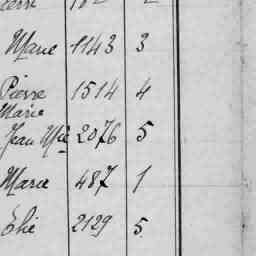 Marie 1143 3
Pierre 1514 4
Marie
Jean Mie 2076 5
Marie 487 1
Elie 2129 5